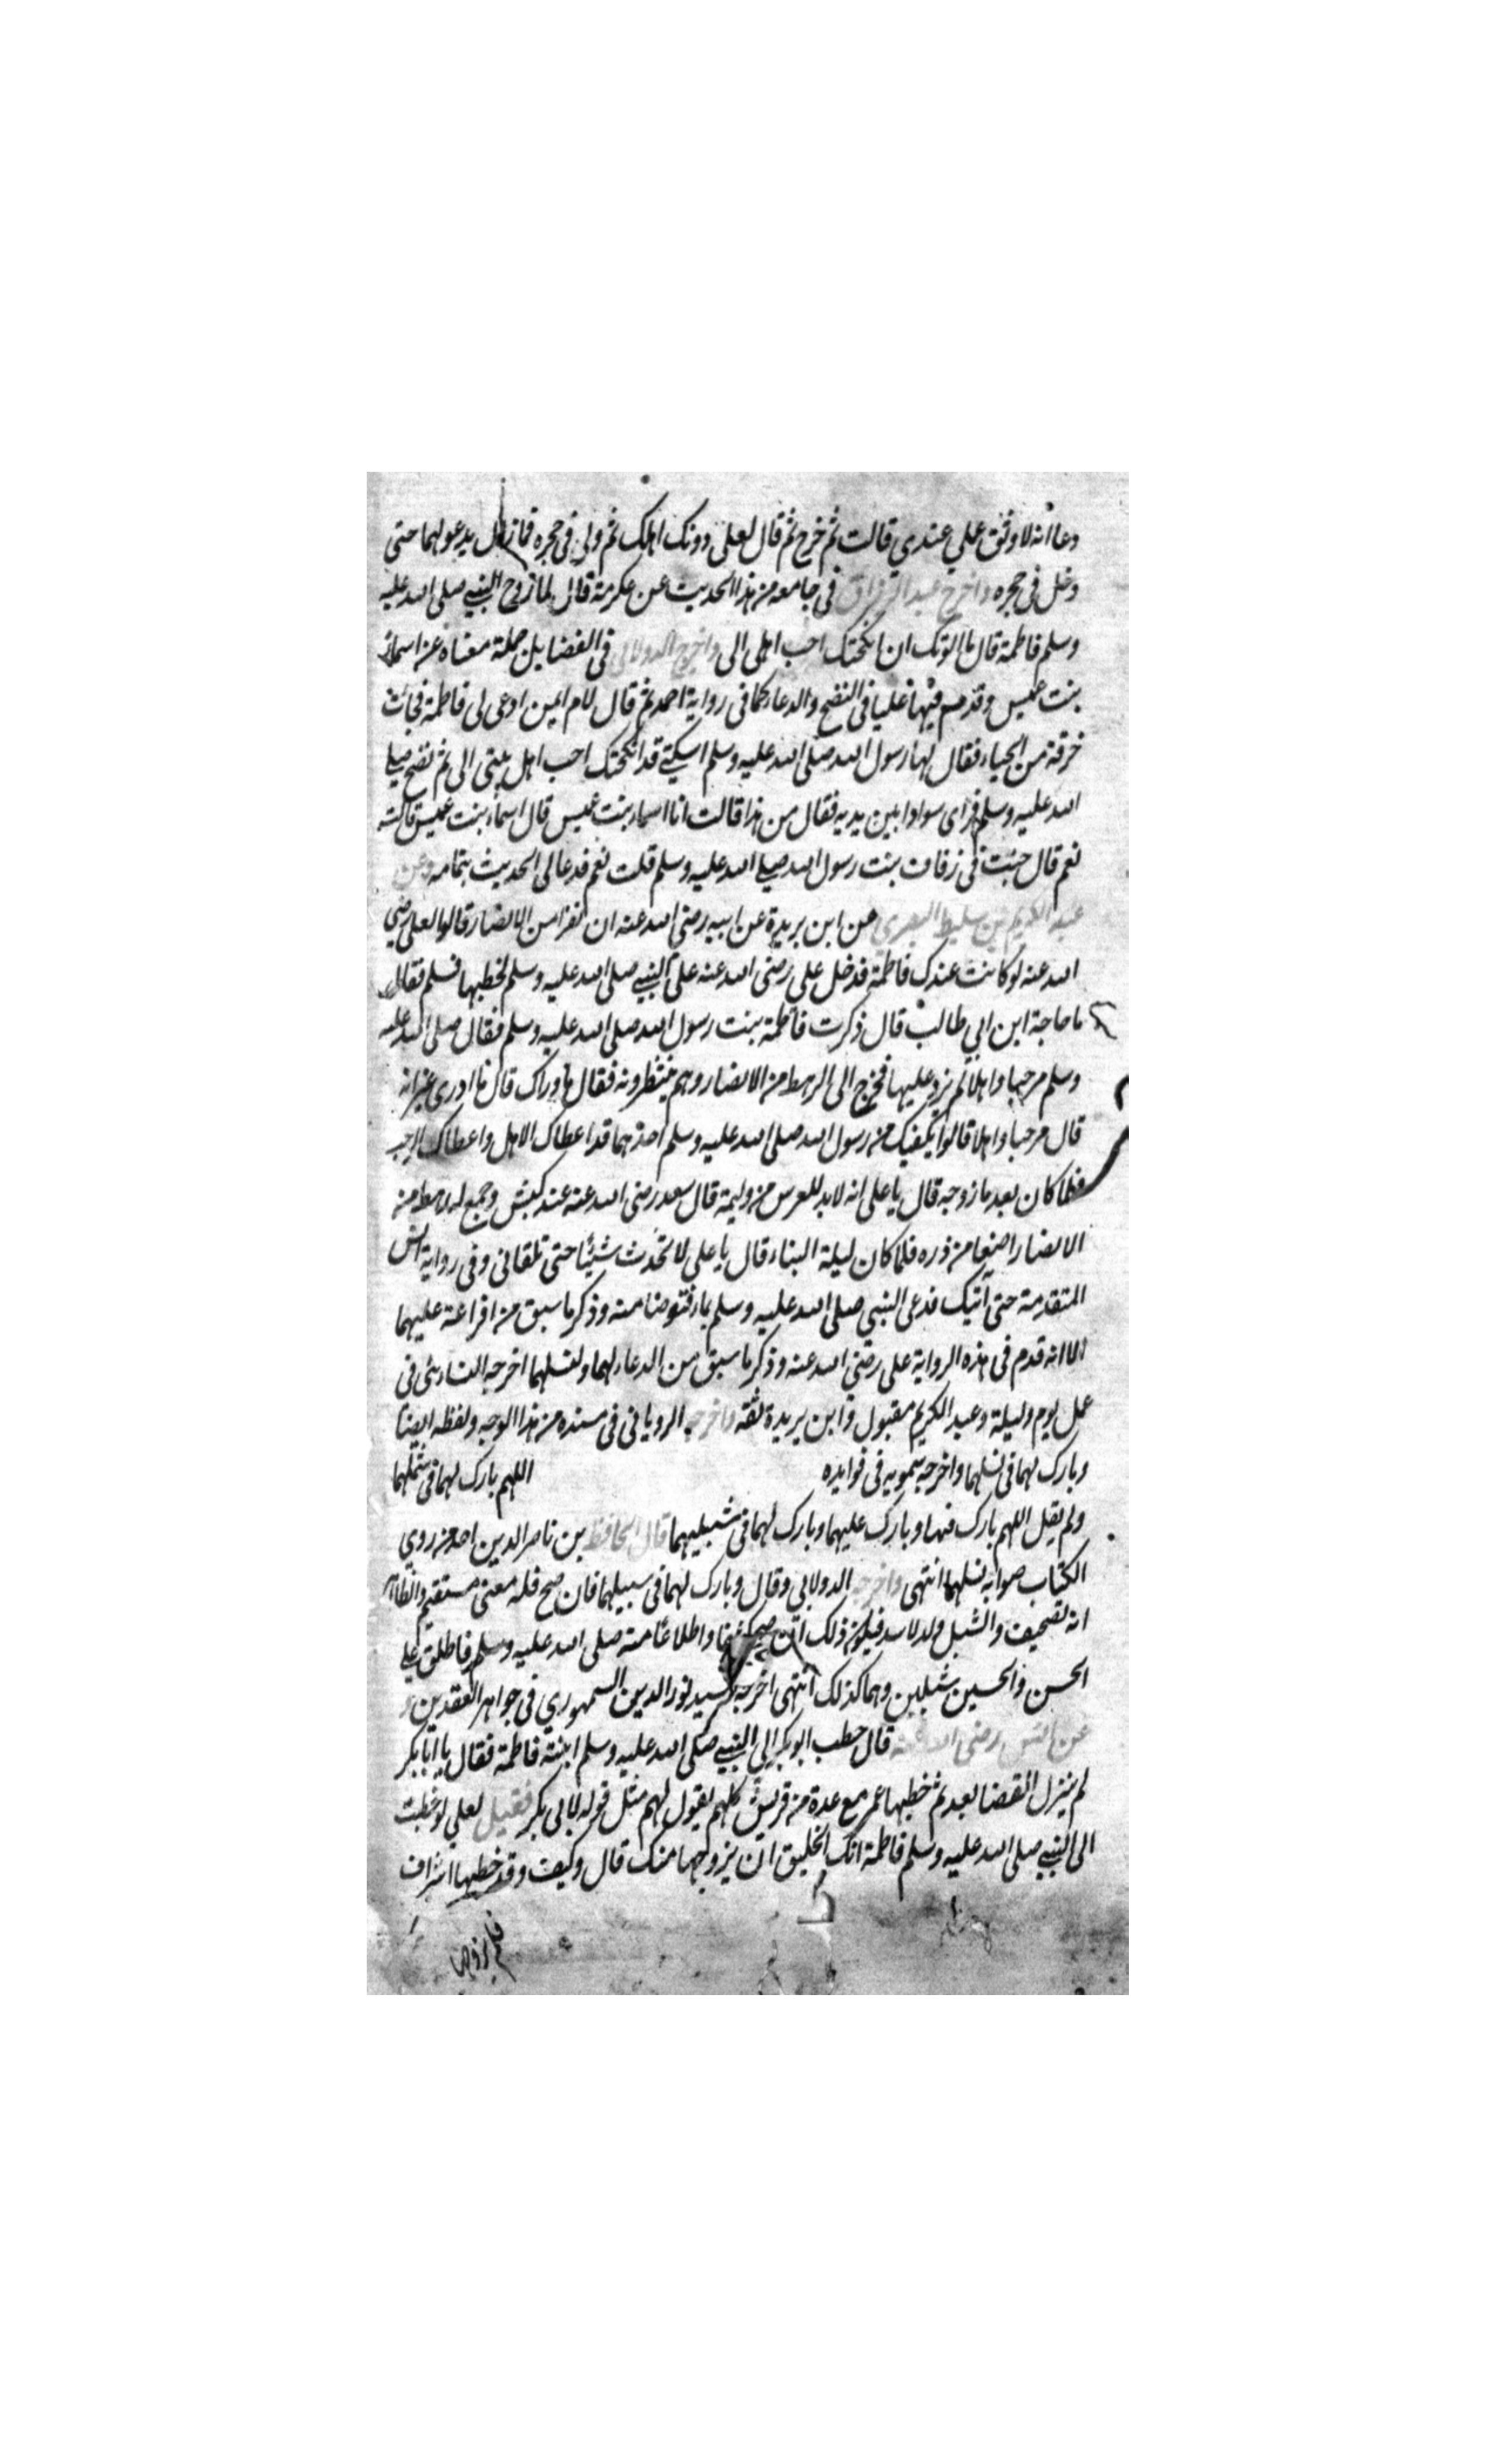 دعا انه لاوثق عملي عندي قالت ثم خرج ثم قال لعلى دونك اهلك ثم ولى فى حجره فما زال يدعو لهما حتى
دخل فى حجره واخرج عبد الرزاق فى جامعه من هذا الحديث عن عكرمة قال لما زوج النبي صلى الله عليه
وسلم فاطمة قال ما الوتك ان انكحتك احب اهلى الى واخرج الدولابي فى الفضايل جملة معناه عن اسماء
بنت عميس وقدم فيها عليا فى النضح والدعاء كما فى رواية احمد ثم قال لام ايمن ادعى لى فاطمة فجائت
خرقة من الحياء فقال لها رسول الله صلى الله عليه وسلم اسكتي قد انكحتك احب اهل بيتى الى ثم نضح صلى
الله عليه وسلم فراى سوادا بين يديه فقال من هذا قالت انا اسماء بنت عميس قال اسماء بنت عميس قالت
نعم قال جئت فى زفاف بنت رسول الله صلى الله عليه وسلم قلت نعم فدعا لى الحديث بتمامه وعن
عبد الكريم بن سليط البصري عن ابن بريدة عن ابيه رضى الله عنه ان نفرا من الانصار قالوا لعلى رضي
الله عنه لو كانت عندك فاطمة فدخل على رضى الله عنه على النبي صلى الله عليه وسلم لخطبها فسلم فقال
ما حاجة ابن ابي طالب قال ذكرت فاطمة بنت رسول الله صلى الله عليه وسلم فقال صلى الله عليه
وسلم مرحبا واهلا لم يزد عليها فخرج الى الرهط من الانصار وهم ينتظرونه فقال ما وراك قال ما ادرى غير انه
قال مرحبا واهلا قالوا يكفيك من رسول الله صلى الله عليه وسلم احدهما قد اعطاك الاهل واعطاك الرحب
فلما كان بعد ما زوجه قال يا على انه لابد للعرس من وليمة قال سعد رضى الله عنه عندى كبش وجمع له رهط من
الانصار اصعا من ذره فلما كان ليلة البناء قال يا على لا تحدث شيئا حتى تلقانى وفى رواية انس
المتقدمة حتى آتيك فدعى النبي صلى الله عليه وسلم بماء فتوضا منه وذكر ما سبق من افراغه عليهما
الا انه قدم فى هذه الرواية على رضى الله عنه وذكر ما سبق من الدعاء لهما ولنسلهما اخرجه النسائى فى
عمل يوم وليلة وعبد الكريم مقبول وابن بريدة ثقه واخرجه الرويانى فى مسنده من هذا الوجه ولفظه ايضا
وبارك لهما فى نسلهما واخرجه سمويه فى فوايده اللهم بارك لهما فى شملهما
ولم يقل اللهم بارك فيهما وبارك عليهما وبارك لهما فى شبليهما قال الحافظ بن ناصر الدين احد من روي
الكتاب صوابه نسلهما انتهى واخرجه الدولابي وقال وبارك لهما فى سبيلهما فان صح فله معنى مستقيم والظاهر
انه تصحيف والشبل ولد الاسد فيكون ذلك ان صح واطلاعا منه صلى الله عليه وسلم فاطلق على
الحسن والحسين شبلين وهما كذلك انتهى اخرجه السيد نور الدين السمهودي فى جواهر العقدين و
عن انس رضى الله عنه قال خطب ابو بكر الى النبي صلى الله عليه وسلم ابنته فاطمة فقال يا ابا بكر
لم ينزل القضا بعد ثم خطبها عمر مع عدة من قريش كلهم يقول لهم مثل قوله لابى بكر فقيل لعلي لو خطبت
الى النبي صلى الله عليه وسلم فاطمة انك لخليق ان يزوجها منك قال وكيف وقد خطبها اشراف
فلم يزوجها